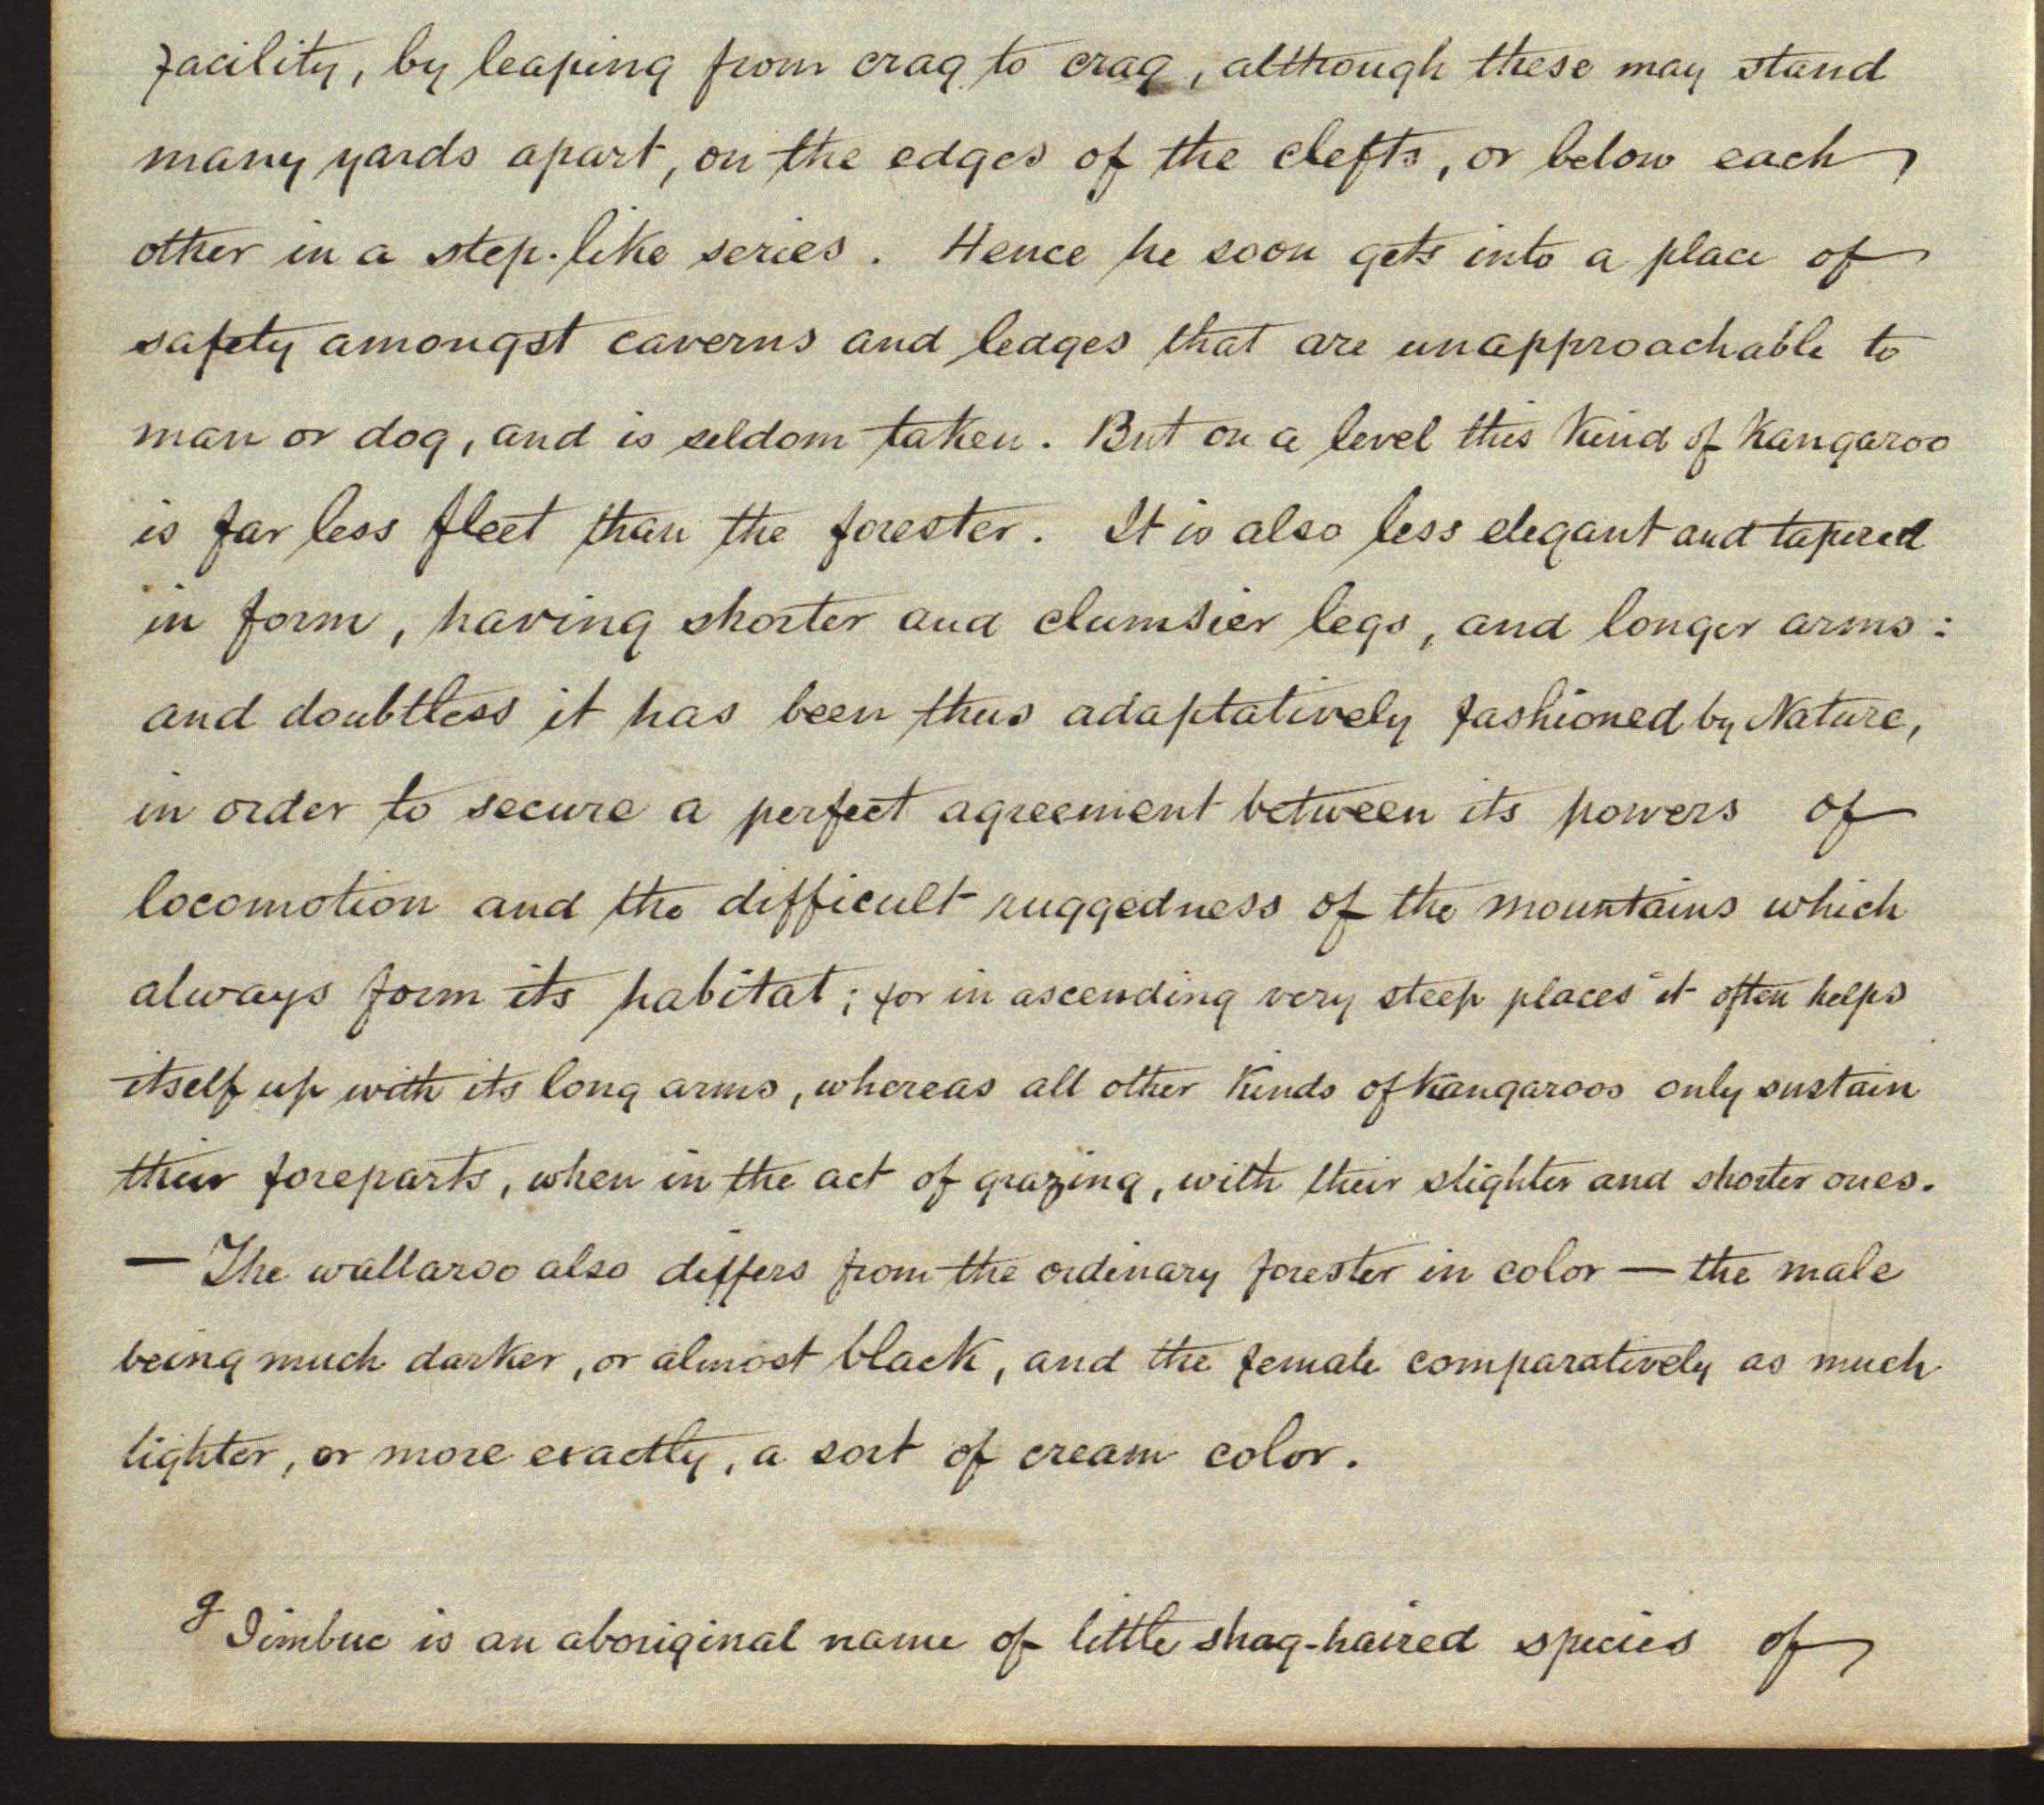 facility, by leaping from crag to crag, although these may stand
many yards apart, on the edges of the clefts, or below each
other in a step-like series. Hence he soon gets into a place of
safety amongst caverns and ledges that are unapproachable to
man or dog, and is seldom taken. But on a level this kind of Kangaroo
is far less fleet than the forester. It is also less elegant and tapered
in form, having shorter and clumsier legs, and longer arms:
and doubtless it has been thus adaptatively fashioned by Nature,
in order to secure a perfect agreement between its powers of
locomotion and the difficult ruggedness of the mountains which
always form its habitat; for in ascending very steep places it often helps
itself up with its long arms, whereas all other kinds of Kangaroos only sustain
their foreparts, when in the act of grazing, with their slighter and shorter ones.
— The wallaroo also differs from the ordinary forester in color — the male
being much darker, or almost black, and the female comparatively as much
lighter, or more exactly, a sort of cream color.
g Jimbuc is an aboriginal name of little shag-haired species of